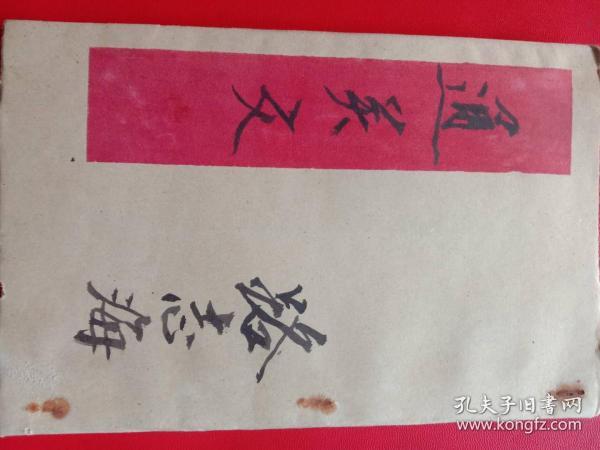 通
文
志海
孔夫子旧书网
www.kongfz.com